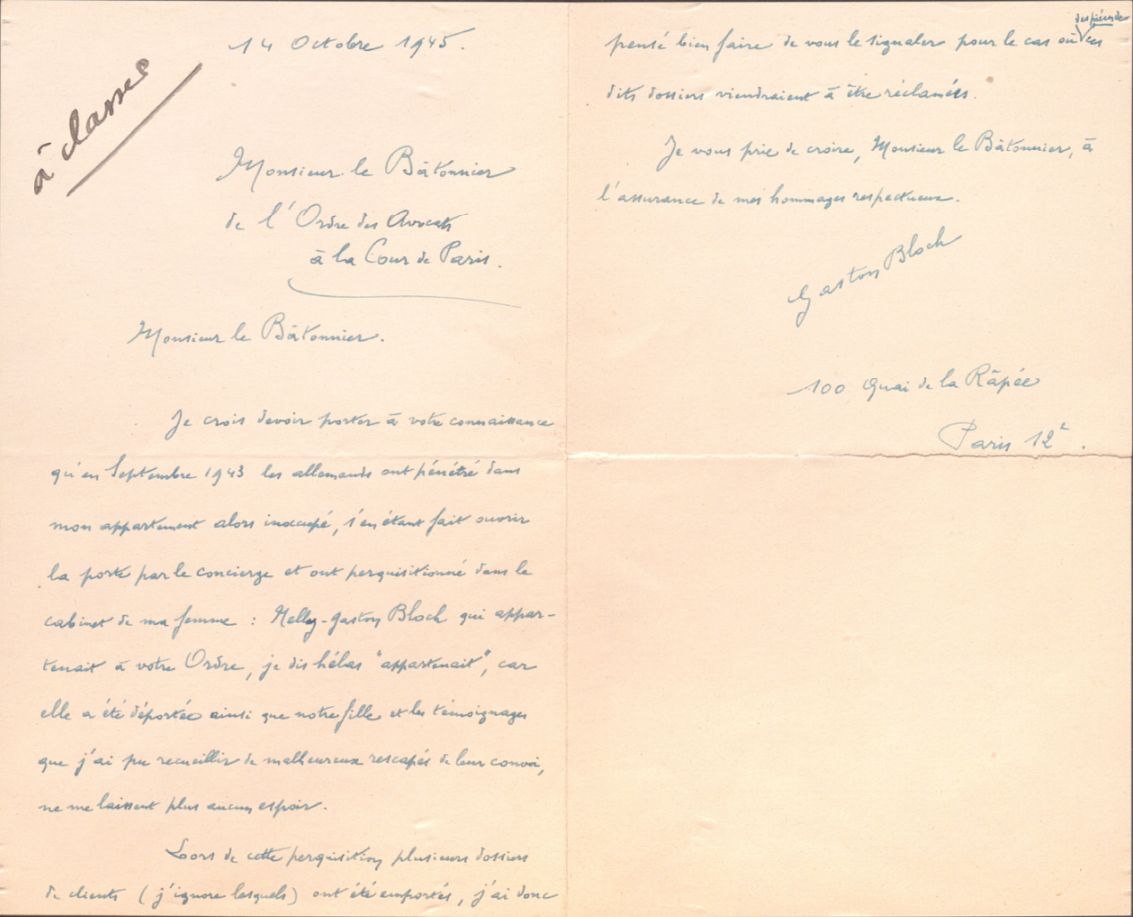 14 Octobre 1945.
à classer
Monsieur le Bâtonnier
de l'Ordre des Avocats
à la Cour de Paris.
Monsieur le Bâtonnier.
Je crois devoir porter à votre connaissance
qu'en Septembre 1943 les allemands ont pénétré dans
mon appartement alors inoccupé, s'en étant fait ouvrir
la porte par le concierge et ont perquisitionné dans le
cabinet de ma femme : Nelly-Gaston Bloch qui appar-
tenait à votre Ordre, je dis hélas "appartenait", car
elle a été déportée ainsi que notre fille et les témoignages
que j'ai pu recueillir de malheureux rescapés de leur convoi,
ne me laissent plus aucun espoir.
Loors de cette perquisition plusieurs dossiers
de clients (j'ignore lesquels) ont été emportés, j'ai donc
des pièces de
pensé bien faire de vous le signaler pour le cas où ces
dits dossiers viendraient à être réclamées.
Je vous prie de croire, Monsieur le Bâtonnier, à
l'assurance de mes hommages respectueux.
Gaston Bloch
100 Quai de la Râpée
Paris 12e.